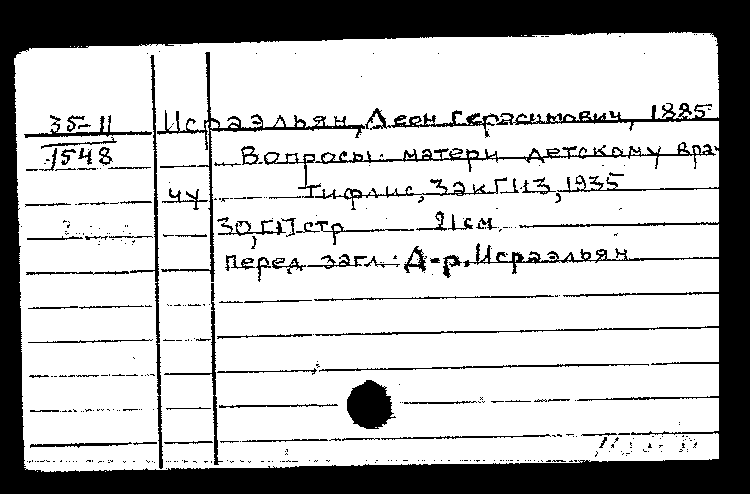 35-11
1548
Исраэльян, Леон Герасимович, 1885
Вопросы матери детскому врач
чу
Тифлис, ЗакГИЗ, 1935
30,[1] стр 21 см
Перед загл.: Д-р. Исраэльян